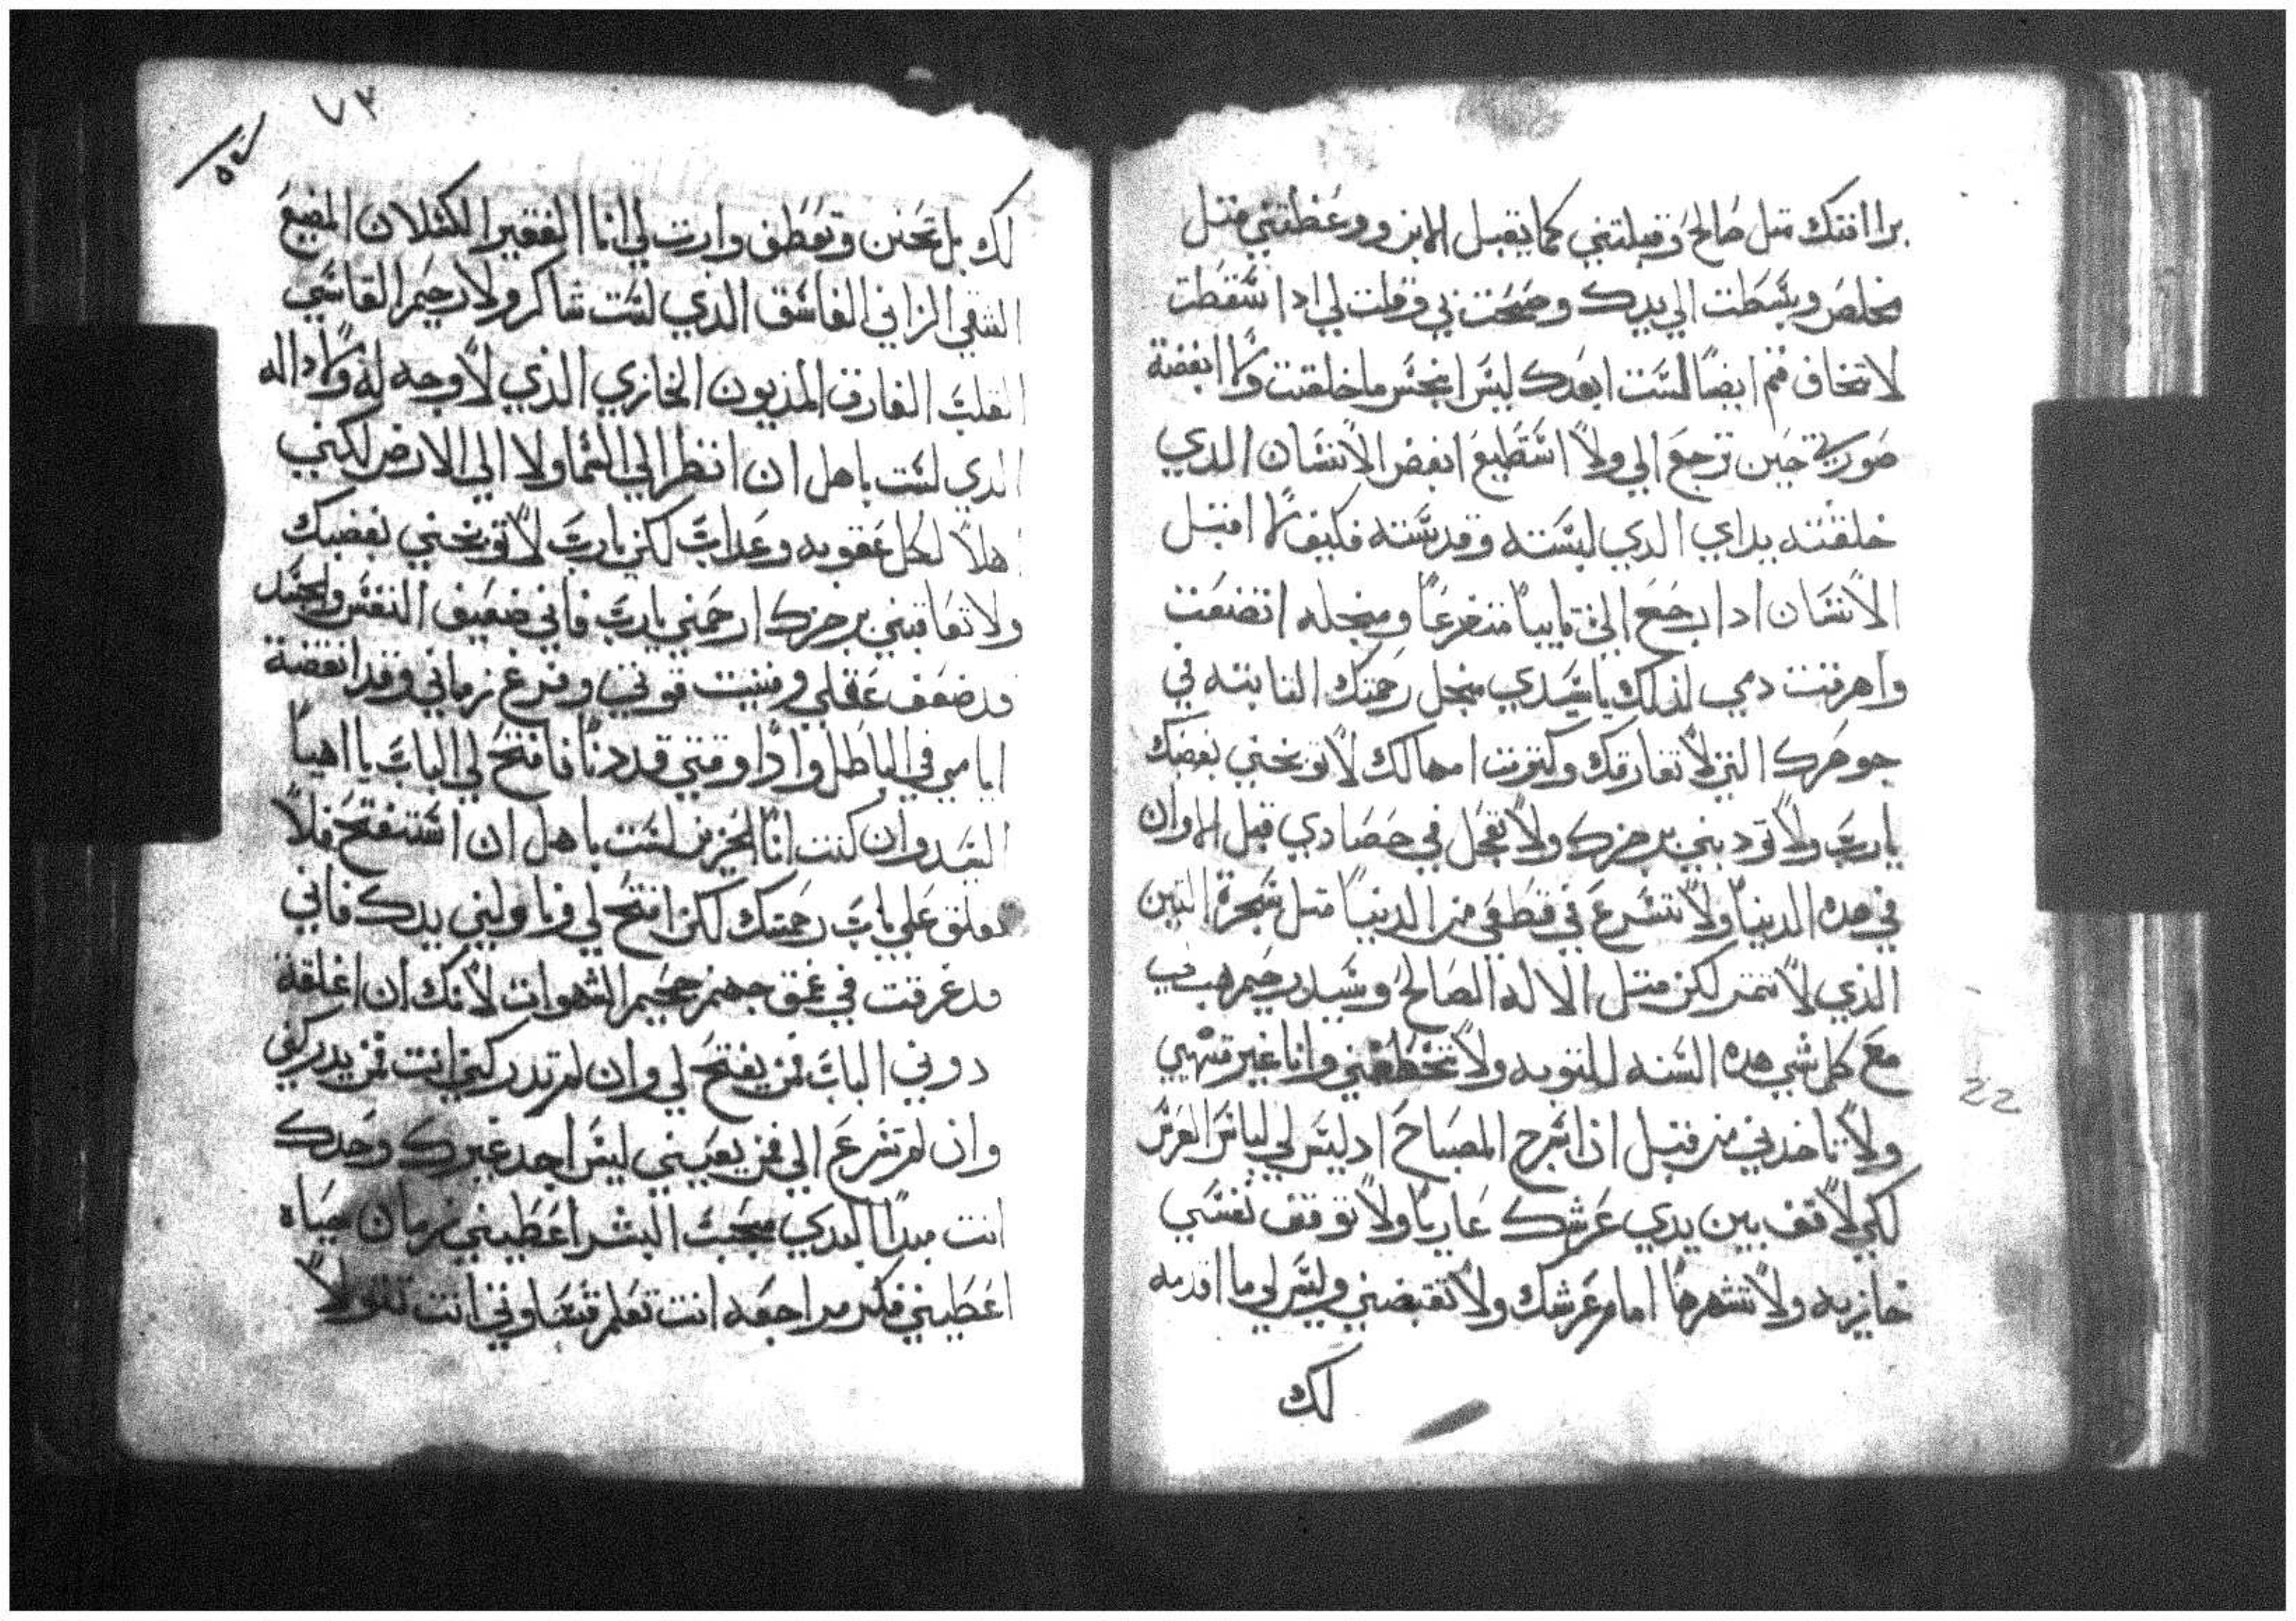 براافتك متل صالح وقبلتني كما يقبل الابن ووعظتني متل
مخلص وبسطت الي يدك وصحت بي وقلت لي ادا سقطت
لا تخاف قم ايضا لست ابعدك ليس انجس ما خلقت ولا ابغضة
صورتي حين ترجع الي ولا استطيع ابغض الانسان الدي
خلقته يداي الدي لبسته وقدسته فكيف لا اقبل
الانسان ادا رجع الي تايبا متضرعا ومنجله اتضعت
واهرقت دمي لذلك ياسيدي منجل رحمتك التابته في
جوهرك التي لا تفارقك وكترت امهالك لا توبخني بغضبك
يارب ولا تودبني برجزك ولا تعجل في حصادي قبل الاوان
في هده الدنيا ولا تسرع في قطعي من الدنيا متل شجرة التين
الذي لا تتمر لكن متل الاله الصالح وسيد رحيم هب لي
مع كل شي هده السنه للتوبه ولا تخطفني وانا غير متهيي
ولا تاخدني من قبل ان اسرج المصباح اد ليس لي لباس العرس
لكي لا اقف بين يدي عرشك عاريا ولا توقف نفسي
خازيه ولا تشهرها امام عرشك ولا تقبضني وليس لي ما اقدمه
لك
٧٣
لك بل تحنن وتعطف وارت لي انا الفقير الكسلان المضيع
الشقي الزاني الفاسق الدي لست شاكر ولا رحيم القاسي
القلب الغارق المديون الخازي الذي لا وجه له ولا داله
الدي لست باهل ان انظر الي السما ولا الي الارض لكني
اهلا لكل عقوبه وعداب لكن يارب لا توبخني بغضبك
ولا تعاقبني برجزك ارحمني يارب فاني ضعيف النفس والجسد
قد ضعف عقلي وفنيت قوتي وفرغ زماني وقد انقضة
ايامي في الباطل وادا وقتي قد دنا فافتح لي الباب يا اهيا
السيد وان كنت انا الحزين لست باهل ان استفتح فلا
تغلق علي باب رحمتك لكن افتح لي وناوليني يدك فاني
قد غرقت في عمق جهنم جحيم الشهوات لانك ان اغلقة
دوني الباب فمن يفتح لي وان لم تدركني انت فمن يدركني
وان لم تسرع الي فمن يعينني ليس احد غيرك وحدك
انت مبدا البدي محب البشر اعطيني زمان حياه
اعطيني فكر مراجعه انت تعلم قساوتي انت تتولا